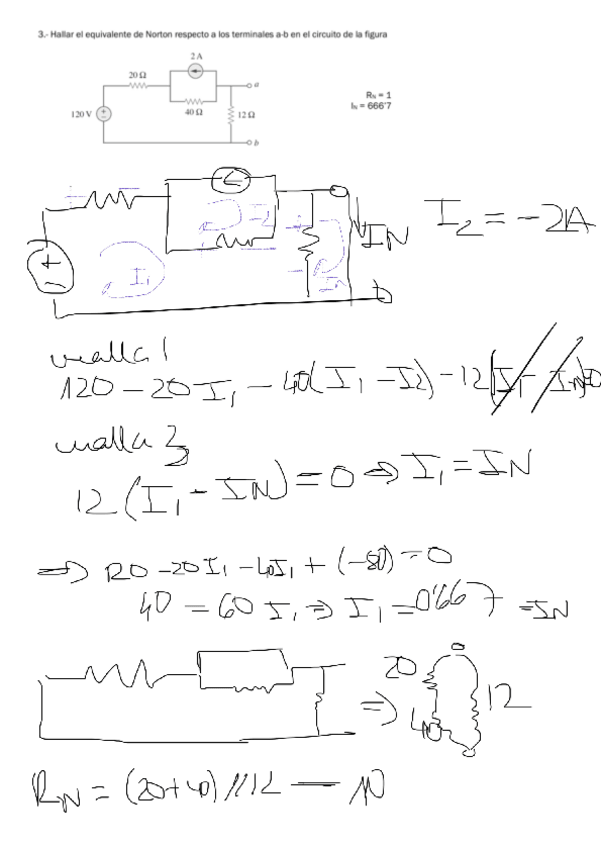 3.- Hallar el equivalente de Norton respecto a los terminales a-b en el circuito de la figura
2 A
20 Ω
a
40 Ω
120 V
12 Ω
b
R_N = 1
I_N = 666'7
I_2 = -2A
I_2
IN
I_1
malla 1
120 - 20 I_1 - 40(I_1 - I_2) - 12(I_1 - I_N)=0
malla 3
12 (I_1 - IN) = 0 => I_1 = IN
=> 120 - 20 I_1 - 40 I_1 + (-80) = 0
40 = 60 I_1 => I_1 = 0'667 = IN
20
=>
12
40
R_N = (20+40)//12 = 10